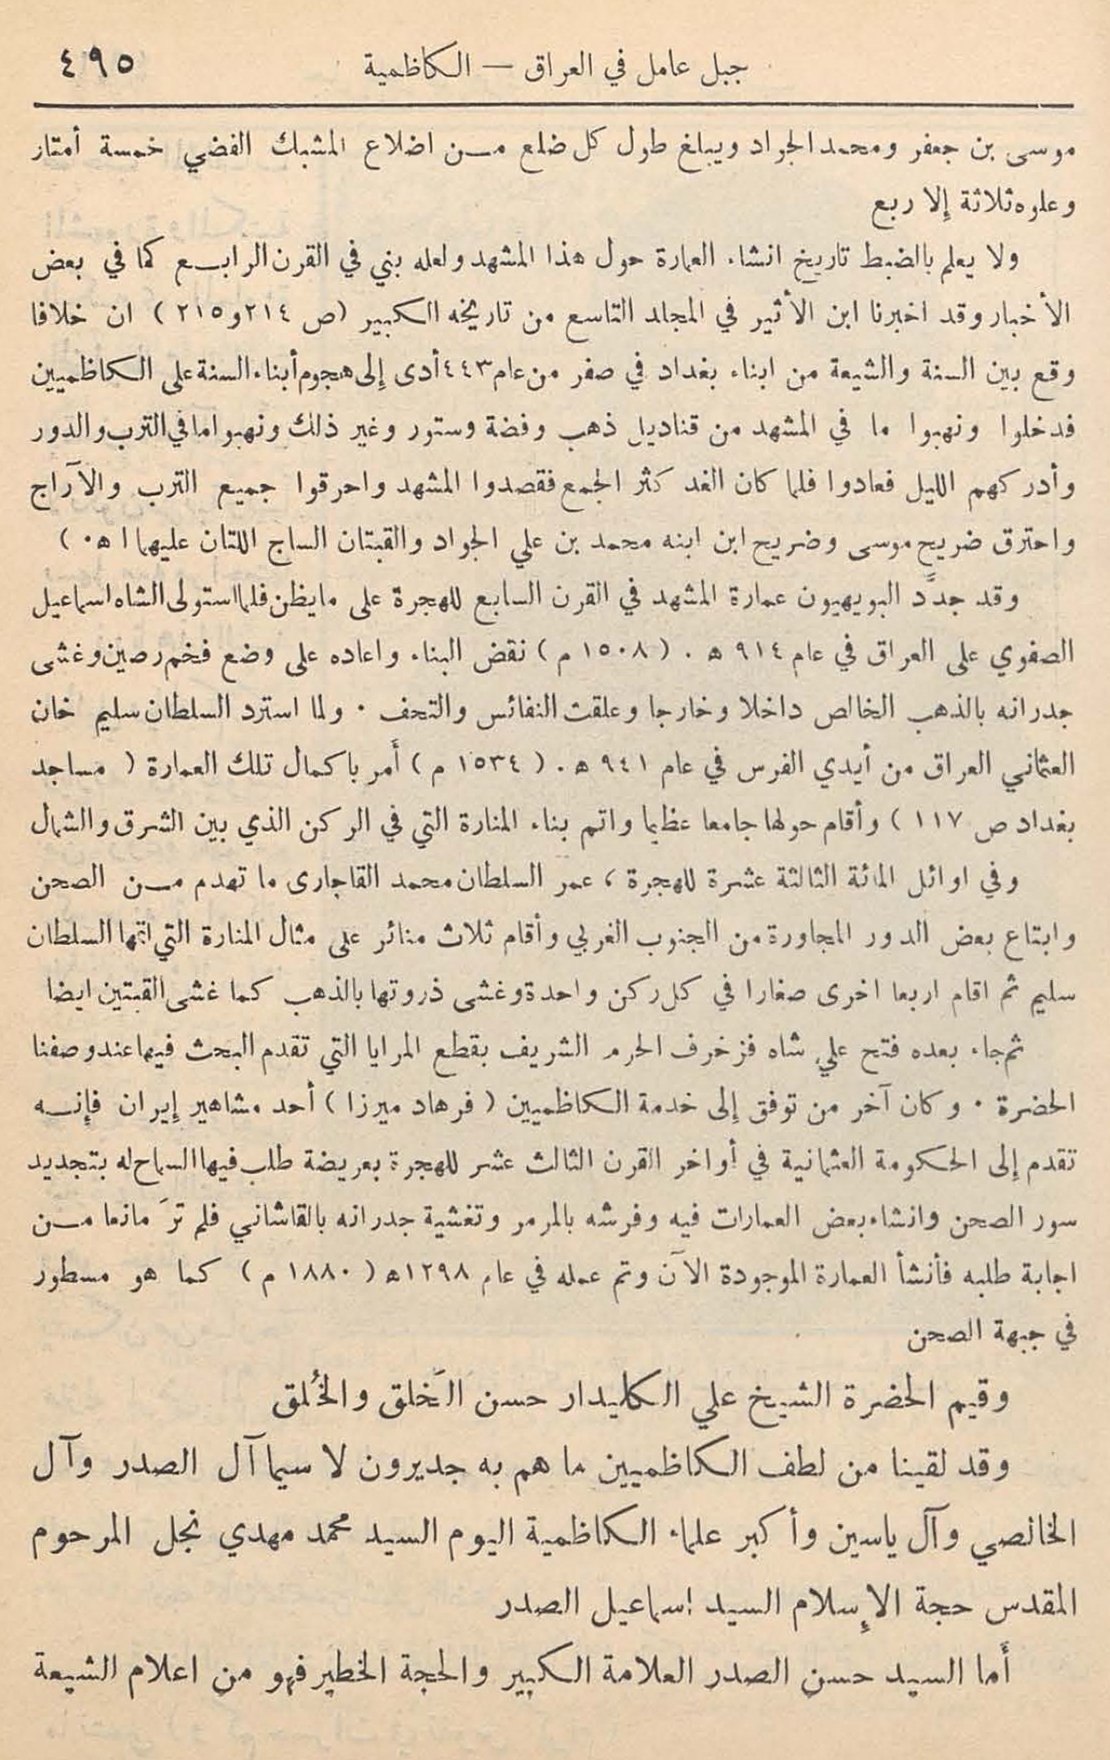 جبل عامل في العراق — الكاظمية ٤٩٥
موسى بن جعفر ومحمد الجواد ويبلغ طول كل ضلع من اضلاع المشبك الفضي خمسة أمتار
وعلوه ثلاثة إلا ربع
ولا يعلم بالضبط تاريخ انشاء العمارة حول هذا المشهد ولعله بني في القرن الرابع كما في بعض
الأخبار وقد اخبرنا ابن الأثير في المجلد التاسع من تاريخه الكبير (ص ٢١٤ و ٢١٥) ان خلافا
وقع بين السنة والشيعة من ابناء بغداد في صفر من عام ٤٤٣ أدى إلى هجوم أبناء السنة على الكاظميين
فدخلوا ونهبوا ما في المشهد من قناديل ذهب وفضة وستور وغير ذلك ونهبوا ما في الترب والدور
وأدركهم الليل فعادوا فلما كان الغد كثر الجمع فقصدوا المشهد واحرقوا جميع الترب والآراج
واحترق ضريح موسى وضريح ابن ابنه محمد بن علي الجواد والقبتان الساج اللتان عليهما اه ٠ )
وقد جدَّد البويهيون عمارة المشهد في القرن السابع للهجرة على ما يظن فلما استولى الشاه اسماعيل
الصفوي على العراق في عام ٩١٤ هـ . ( ١٥٠٨ م ) نقض البناء واعاده على وضع فخم رصين وغشى
جدرانه بالذهب الخالص داخلا وخارجا وعلقت النفائس والتحف ٠ ولما استرد السلطان سليم خان
العثماني العراق من أيدي الفرس في عام ٩٤١ هـ . ( ١٥٣٤ م ) أمر باكمال تلك العمارة ( مساجد
بغداد ص ١١٧ ) وأقام حولها جامعا عظيما واتم بناء المنارة التي في الركن الذي بين الشرق والشمال
وفي اوائل المائة الثالثة عشرة للهجرة ، عمر السلطان محمد القاجارى ما تهدم من الصحن
وابتاع بعض الدور المجاورة من الجنوب الغربي وأقام ثلاث منائر على مثال المنارة التي اتمها السلطان
سليم ثم اقام اربعا اخرى صغارا في كل ركن واحدة وغشى ذروتها بالذهب كما غشى القبتين ايضا
ثم جاء بعده فتح علي شاه فزخرف الحرم الشريف بقطع المرايا التي تقدم البحث فيها عند وصفنا
الحضرة ٠ وكان آخر من توفق إلى خدمة الكاظميين ( فرهاد ميرزا ) أحد مشاهير إيران فإنه
تقدم إلى الحكومة العثمانية في أواخر القرن الثالث عشر للهجرة بعريضة طلب فيها السماح له بتجديد
سور الصحن وانشاء بعض العمارات فيه وفرشه بالمرمر وتغشية جدرانه بالقاشاني فلم ترَ مانعا من
اجابة طلبه فأنشأ العمارة الموجودة الآن وتم عمله في عام ١٢٩٨هـ ( ١٨٨٠ م ) كما هو مسطور
في جبهة الصحن
وقيم الحضرة الشيخ علي الكليدار حسن الَخلق والخُلق
وقد لقينا من لطف الكاظميين ما هم به جديرون لا سيما آل الصدر وآل
الخالصي وآل ياسين وأكبر علماء الكاظمية اليوم السيد محمد مهدي نجل المرحوم
المقدس حجة الإسلام السيد اسماعيل الصدر
أما السيد حسن الصدر العلامة الكبير والحجة الخطير فهو من اعلام الشيعة